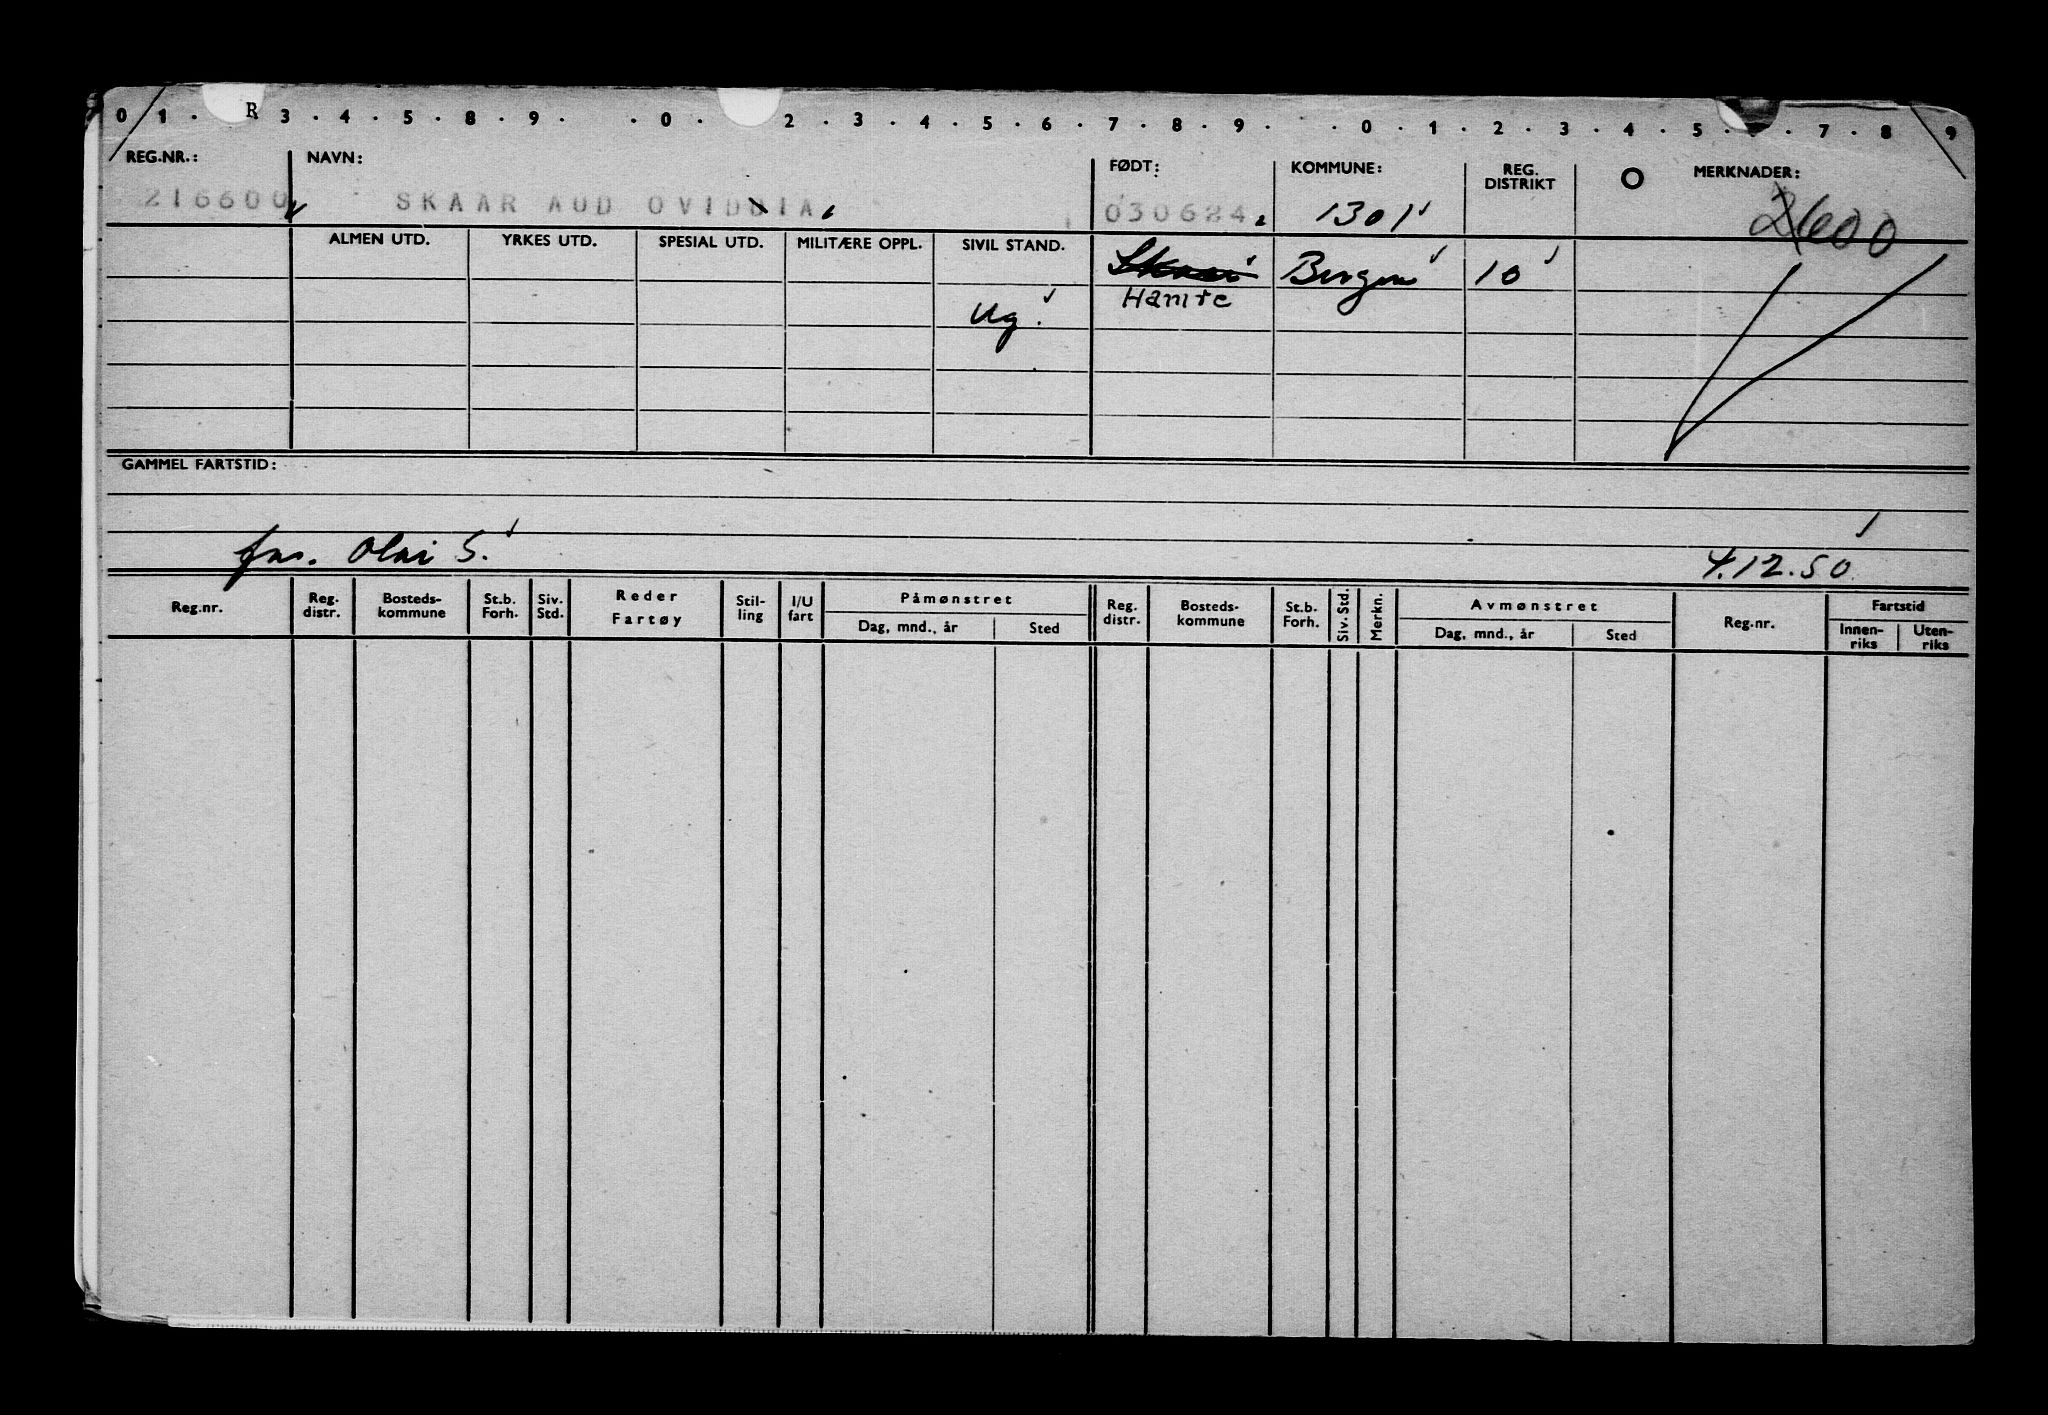 0 1 . R 3 . 4 . 5 . 8 . 9 . . 0 . 2 . 3 . 4 . 5 . 6 . 7 . 8 . 9 . . 0 . 1 . 2 . 3 . 4 . 5 . . . 7 . 8 9
REG.NR.: NAVN: FØDT: KOMMUNE: REG. DISTRIKT O MERKNADER:
216600 SKAAR AUD 030624 1301 2600
ALMEN UTD. YRKES UTD. SPESIAL UTD. MILITÆRE OPPL. SIVIL STAND.
Bergen 10
ug.
GAMMEL FARTSTID:
far. Olai S. 4.12.50
Reg.nr. Reg. distr. Bosteds- kommune St.b. Forh. Siv. Std. Reder Fartøy Stil- ling I/U fart Påmønstret Reg. distr. Bosteds- kommune St.b. Forh. Siv. Std. Merkn. Avmønstret Reg.nr. Fartstid
Dag, mnd., år Sted Dag, mnd., år Sted Innen- riks Uten- riks